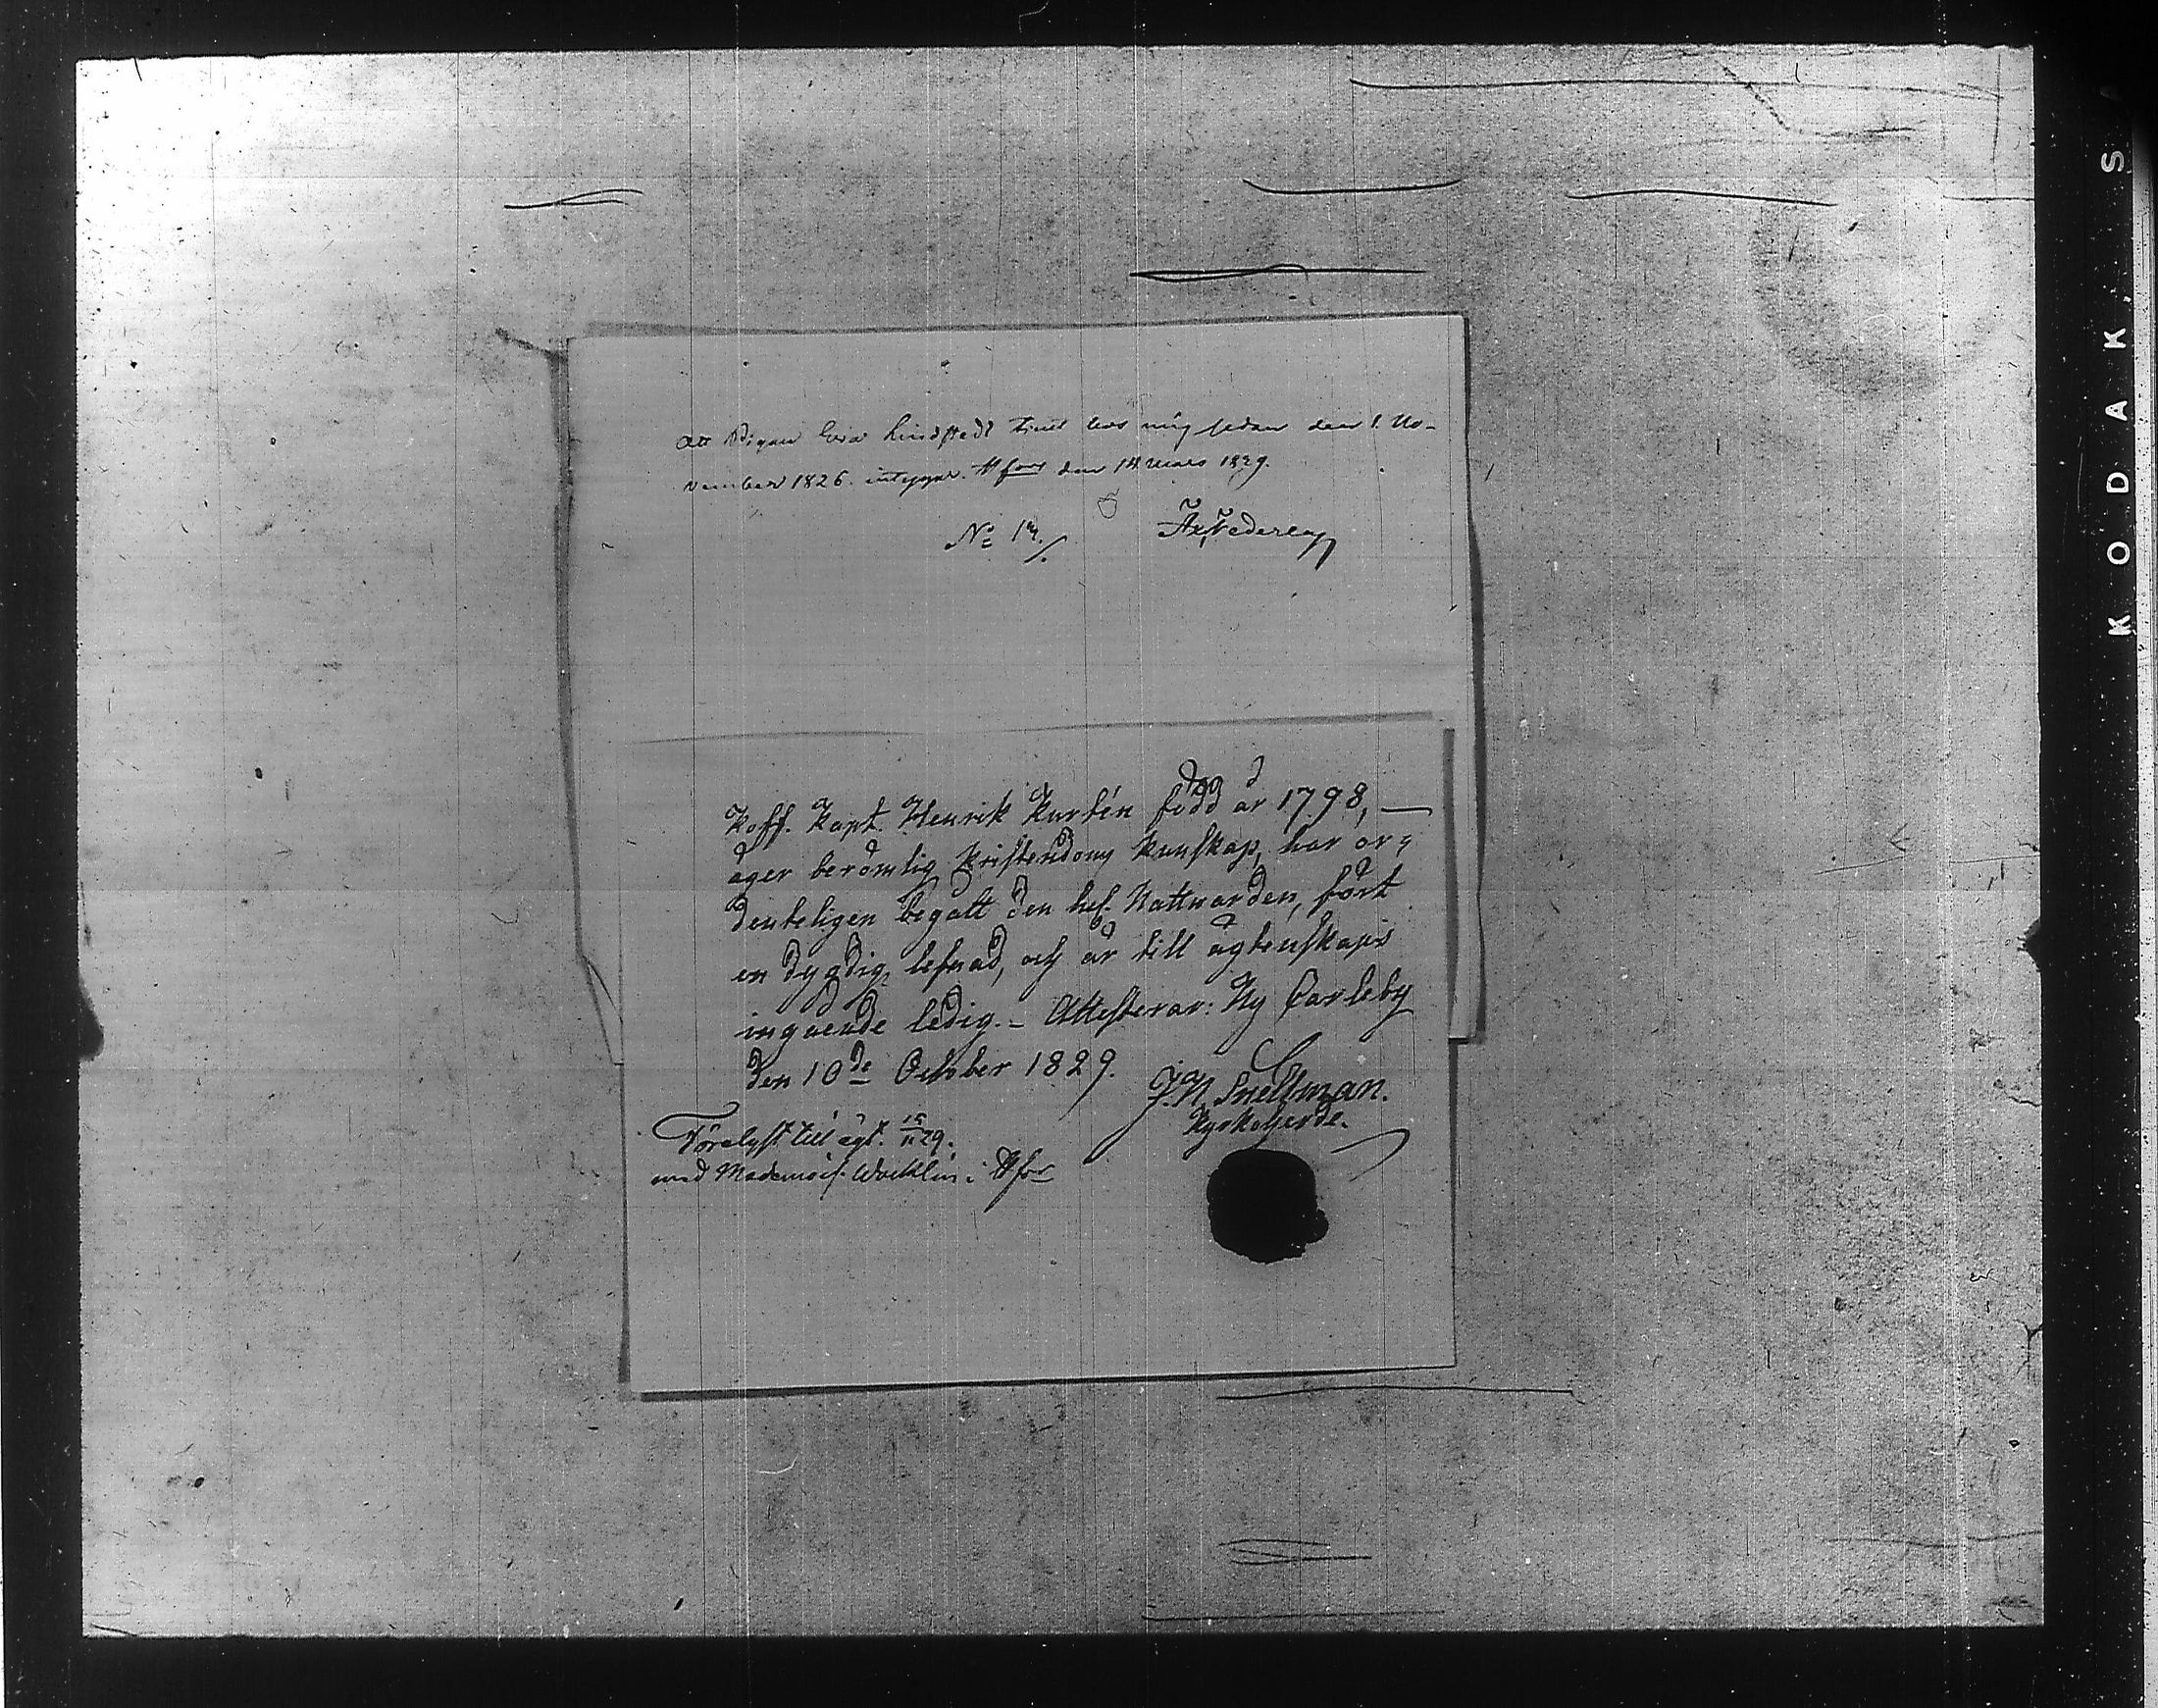 Att Pigan Eva Lindstedt tient hos mig sedan den 1. No-
vember 1826. intygar. Hfors den 14 Mars 1829.
No 14/.
Koff. Kapt. Henrik Kurtén född år 1798, —
äger berömlig Kristendoms kunskap, har or-
denteligen begått den hel. Nattvarden, fört
en dygdig lefnad, och är till ägtenskaps
ingående ledig. – Attesterar: Ny Carleby
den 10de October 1829.
J. N. Snellman.
Kyrkoherde.
Förelyst till ägt. 15/11 29.
med Mademois. Wacklin i Hfors
KODAK S